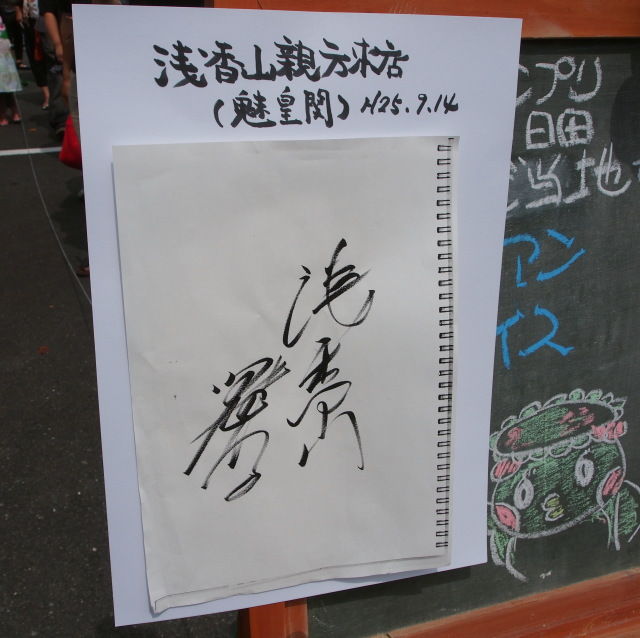 浅香山親方来店
(魁皇関) H25.9.14
浅香山
ンプリ
日田
ご当地
アン
イス